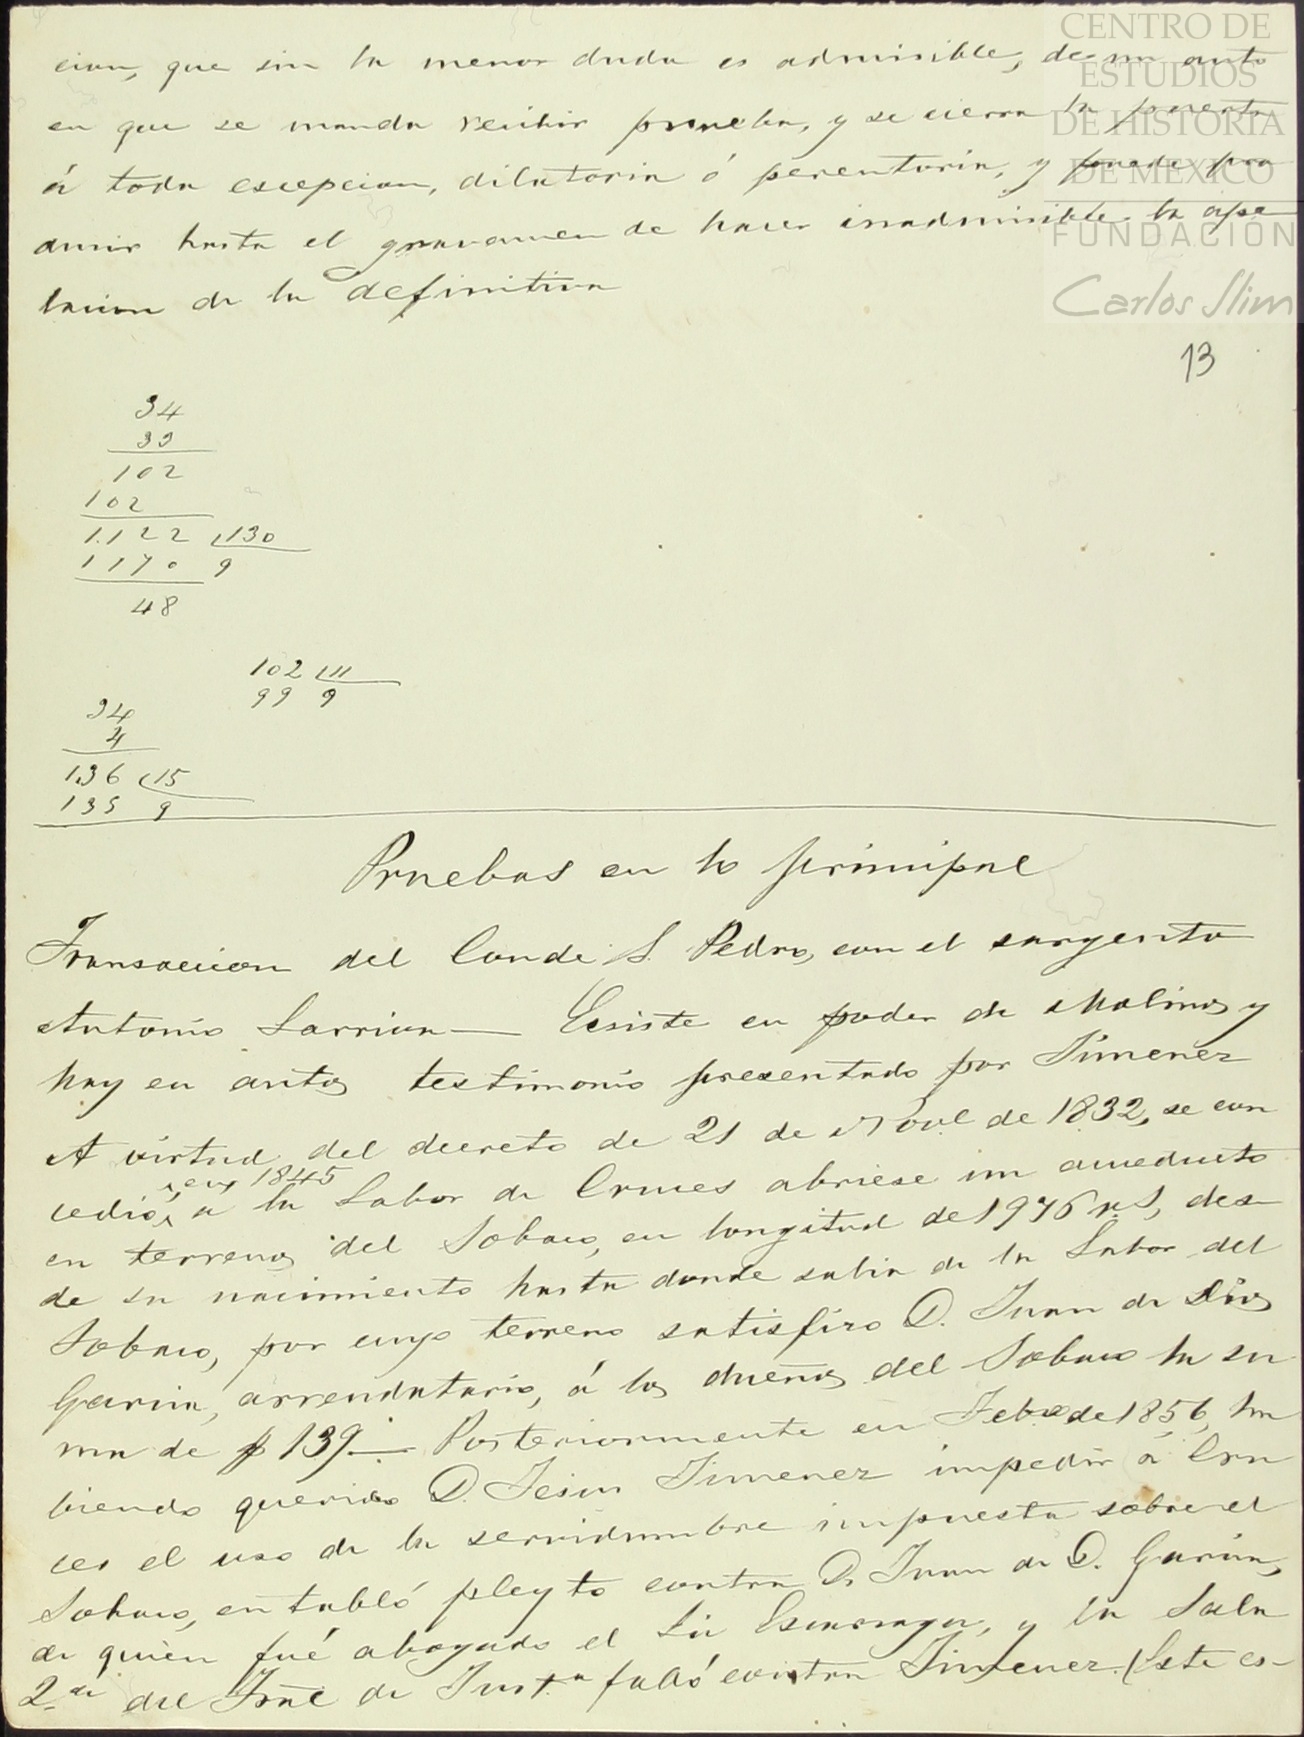 cion, que sin la menor duda es admisible, de un auto
en que se manda recibir prueba, y se cierra la puerta
á toda escepcion, dilatoria ó perentoria, y puede pro
ducir hasta el gravamen de hacer inadmisible la ape
lacion de la definitiva
CENTRO DE
ESTUDIOS
DE HISTORIA
DE MEXICO
FUNDACIÓN
Carlos Slim
13
34
33
102
102
1.122 130
1170 9
48
102 11
99 9
34
4
136 15
135 9
Pruebas en lo principal
Transaccion del Conde S. Pedro, con el sargento
Antonio Larriva — Ecsiste en poder de Molinos y
hay en autos testimonio presentado por Jimenez
A virtud del decreto de 21 de Novl de 1832, se con
cedió, en 1845 a la Labor de Cruces abriese un acueducto
en terrenos del Sobaco, en longitud de 1976 vs, des
de su nacimiento hasta donde salia de la Labor del
Sobaco, por cuyo terreno satisfizo D. Juan de Dios
Garcia, arrendatario, á los dueños del Sobaco la su
ma de $ 139.— Posteriormente en Febo de 1856, ha
biendo querido D. Jesus Jimenez impedir á Cru
ces el uso de la servidumbre impuesta sobre el
Sobaco, entabló pleyto contra D. Juan de D. Garcia,
de quien fué abogado el Lic Esparza, y la Sala
2.a del Tral de Justa falló contra Jimenez. (Este es-